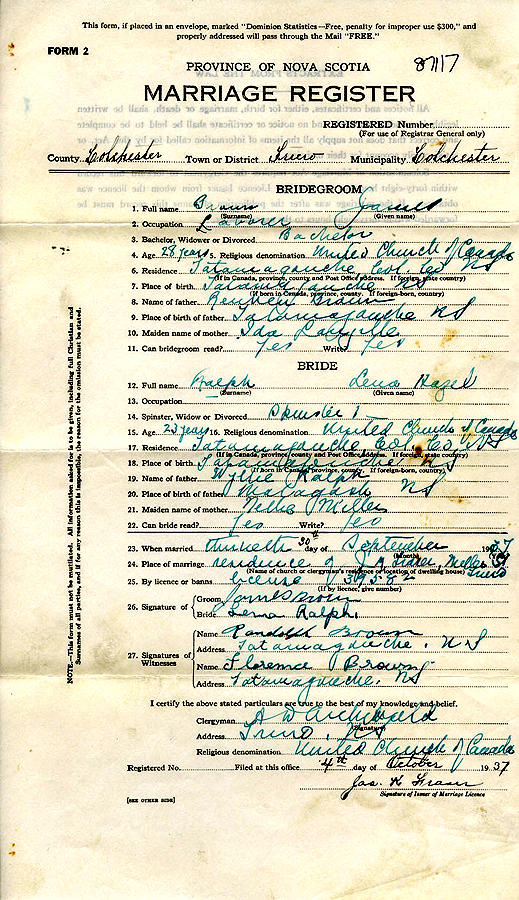 This form, if placed in an envelope, marked "Dominion Statistics—Free, penalty for improper use $300," and
properly addressed will pass through the Mail "FREE."
FORM 2
PROVINCE OF NOVA SCOTIA
MARRIAGE REGISTER
REGISTERED Number
(For use of Registrar General only)
County Colchester Town or District Truro Municipality Colchester
BRIDEGROOM
1. Full name Brown James
(Surname) (Given name)
2. Occupation Laborer
3. Bachelor, Widower or Divorced Bachelor
4. Age 28 years 5. Religious denomination United Church of Canada
6. Residence Tatamagouche Col Co NS
(If in Canada, province, county and Post Office address. If foreign, state country)
7. Place of birth Tatamagouche NS
(If born in Canada, province, county. If foreign-born, country)
8. Name of father Brown
9. Place of birth of father Tatamagouche NS
10. Maiden name of mother Ida
11. Can bridegroom read? Yes Write? Yes
BRIDE
12. Full name Ralph Lena Hazel
(Surname) (Given name)
13. Occupation
14. Spinster, Widow or Divorced Spinster
15. Age 23 years 16. Religious denomination United Church of Canada
17. Residence Tatamagouche Col Co NS
(If in Canada, province, county and Post Office Address. If foreign, state country)
18. Place of birth Tatamagouche NS
(If born in Canada, province, county. If foreign-born, country)
19. Name of father Wylie Ralph
20. Place of birth of father Malagash NS
21. Maiden name of mother Nellie Miller
22. Can bride read? Yes Write? Yes
23. When married 30th day of September 1937
(Month)
24. Place of marriage residence of Truro
(Name of church or clergyman's residence or location of dwelling house)
25. By licence or banns license 39582
(If by licence, give number)
26. Signature of Groom James Brown
Bride Lena Ralph.
27. Signatures of Witnesses
Name Randolph Brown
Address Tatamagouche. NS
Name Florence Brown
Address Tatamagouche. NS
I certify the above stated particulars are true to the best of my knowledge and belief.
Clergyman A D Archibald
(Signature)
Address Truro, NS
Religious denomination United Church of Canada
Registered No. Filed at this office 4th day of October 1937
Jas. K Fraser
Signature of Issuer of Marriage Licence
[SEE OTHER SIDE]
NOTE—This form must not be mutilated. All information asked for is to be given, including full Christian and
Surnames of all parties, and if for any reason this is impossible, the reason for the omission must be stated.